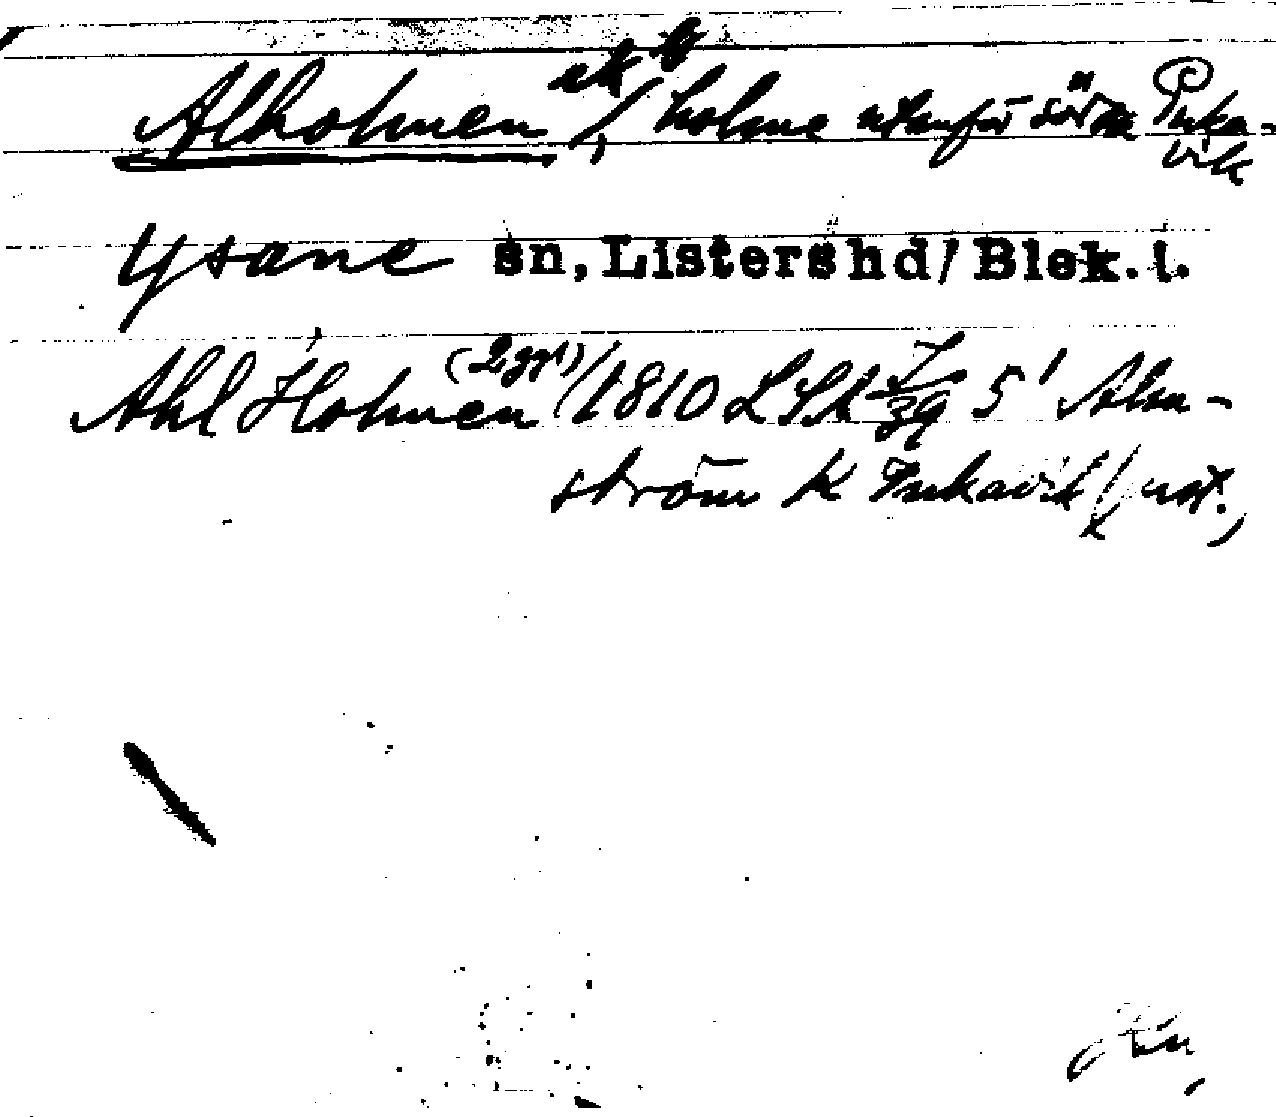 Alholmen ek b / holme utanför söder Puka-
vik
Ysane sn, Listers hd / Blek. l.
Ahl Holmen (2 ggr) / 1810 LSA 5' Alm-
ström K Pukavik / not.,